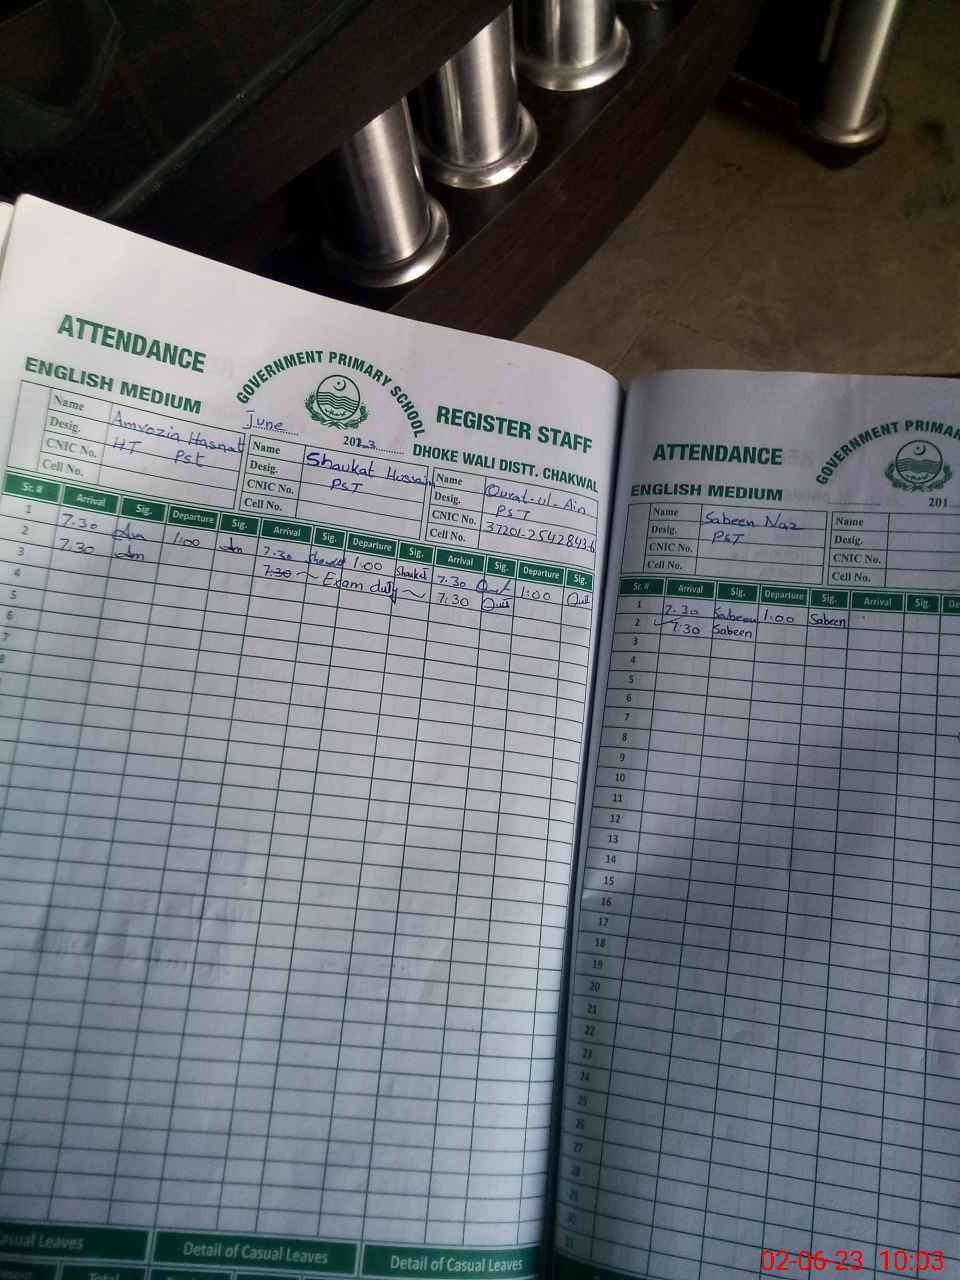 ATTENDANCE
GOVERNMENT PRIMARY SCHOOL
REGISTER STAFF
ENGLISH MEDIUM
June
2023
DHOKE WALI DISTT. CHAKWAL
Name Hasnat
Desig. HT PST
CNIC No.
Cell No.
Name Shaukat Hussain
Desig. PST
CNIC No.
Cell No.
Name Qurat-ul-Ain
Desig. PST
CNIC No. 37201-2542843-6
Cell No.
Sr. # Arrival Sig. Departure Sig. Arrival Sig. Departure Sig. Arrival Sig. Departure Sig.
1 7.30 1:00 7.30 1:00 Shaukat 7.30 1:00
2 7.30 7.30 ~ Exam duty ~ 7.30
3
4
5
6
7
8
Casual Leaves
Detail of Casual Leaves
Detail of Casual Leaves
Total
ATTENDANCE
GOVERNMENT PRIMA
ENGLISH MEDIUM
201
Name Sabeen Naz
Desig. PST
CNIC No.
Cell No.
Name
Desig.
CNIC No.
Cell No.
Sr. # Arrival Sig. Departure Sig. Arrival Sig. De
1 7.30 Sabeen 1:00 Sabeen
2 7.30 Sabeen
3
4
5
6
7
8
9
10
11
12
13
14
15
16
17
18
19
20
21
22
23
24
25
26
27
28
29
30
31
02-06-23 10:03